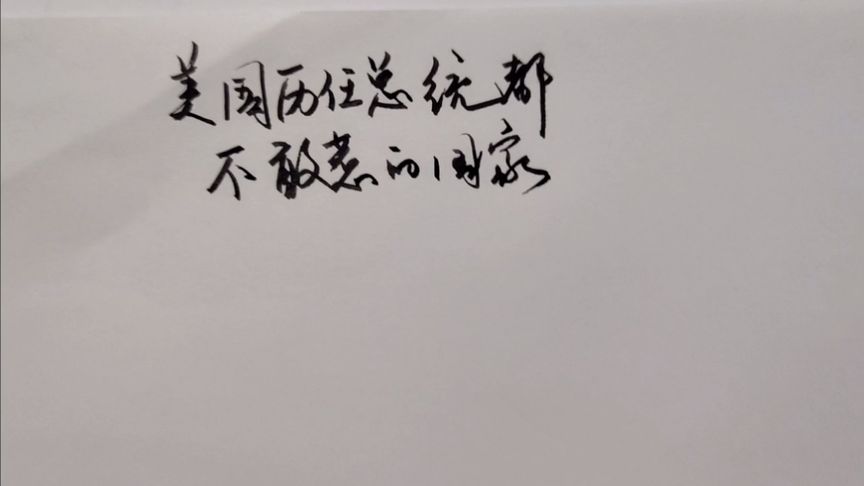 美国历任总统都
不敢惹的国家